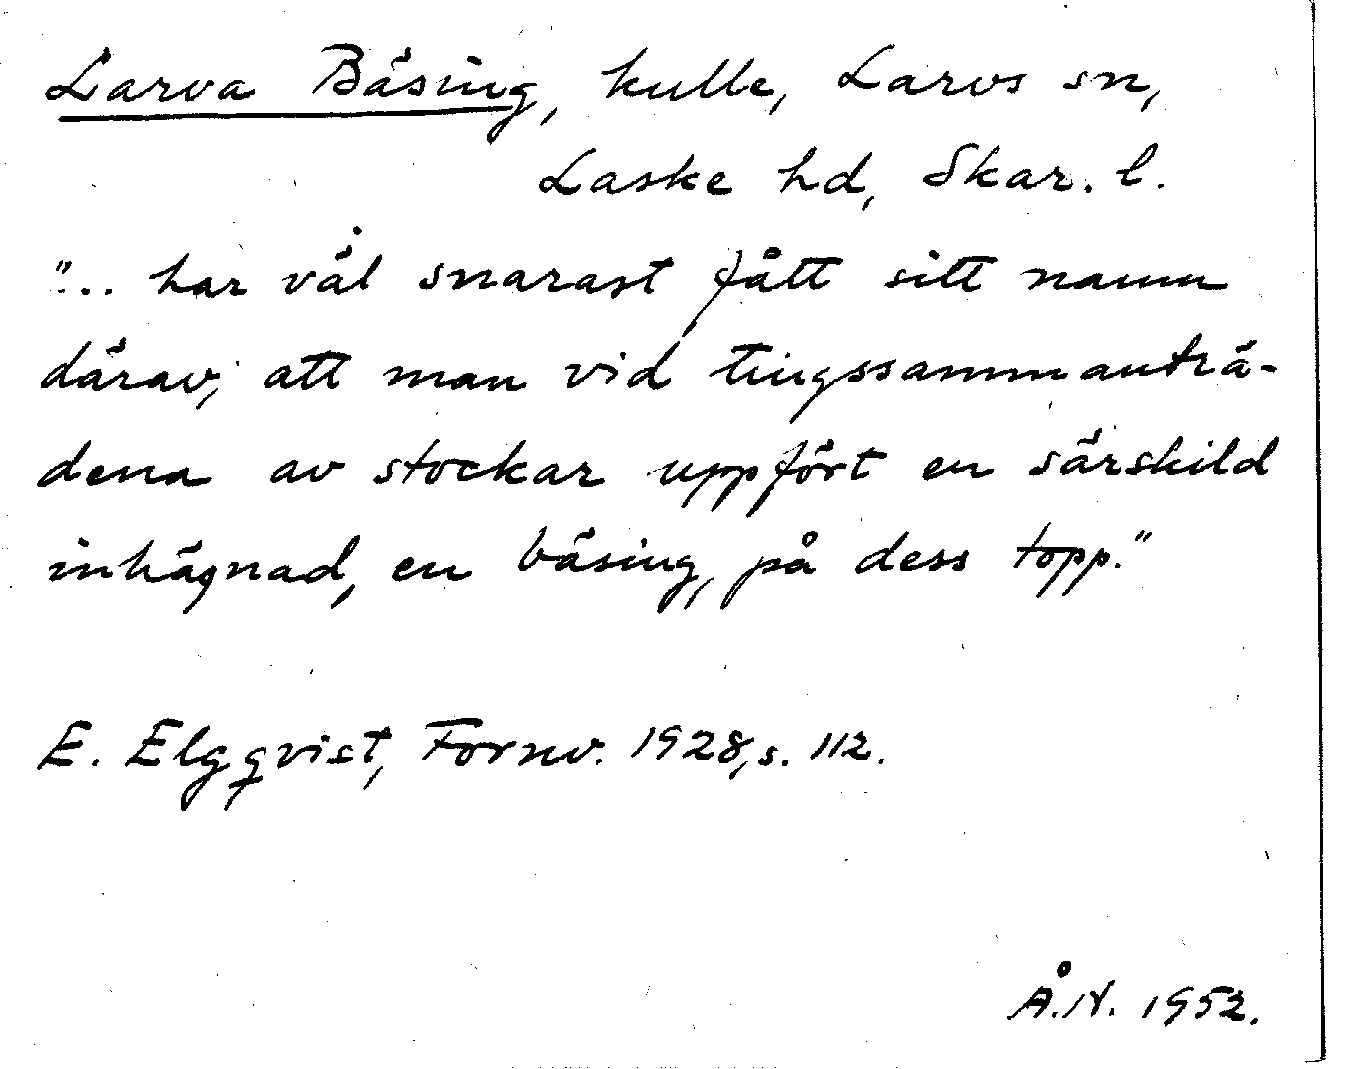 Larva Bäsing, kulle, Larvs sn,
Laske hd, Skar. l.
"... har väl snarast fått sitt namn
därav, att man vid tingssammanträ-
dena av stockar uppfört en särskild
inhägnad, en bäsing, på dess topp."
E. Elgqvist, Fornv. 1928, s. 112.
Å.N. 1952.